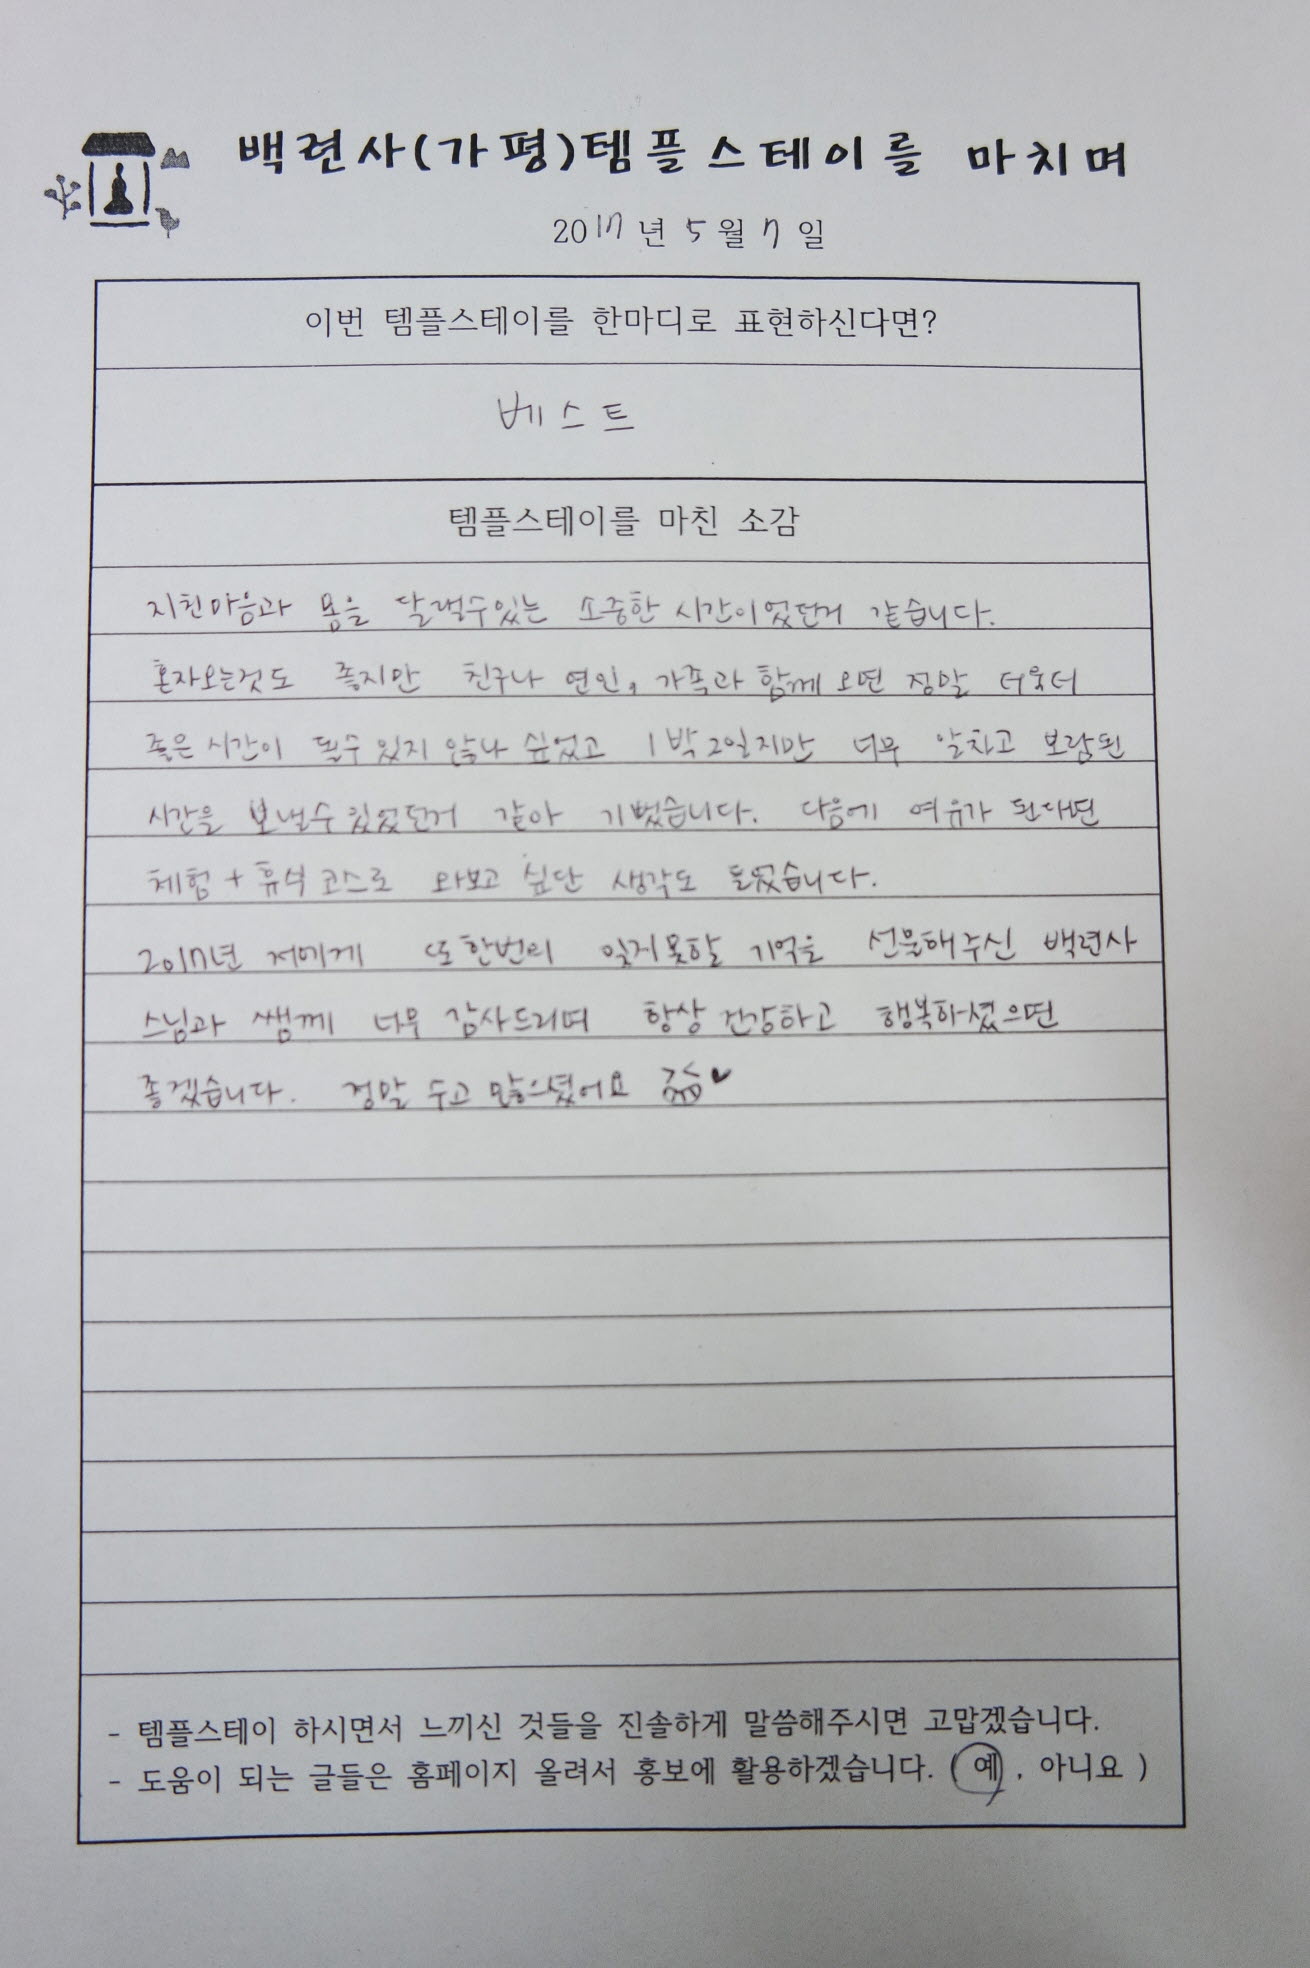 백련사(가평)템플스테이를 마치며
2017년 5월 7일
이번 템플스테이를 한마디로 표현하신다면?
베스트
템플스테이를 마친 소감
지친마음과 몸을 달랠수있는 소중한 시간이었던거 같습니다.
혼자오는것도 좋지만 친구나 연인, 가족과 함께 오면 정말 더욱더
좋은 시간이 될수 있지 않나 싶었고 1박2일지만 너무 알차고 보람된
시간을 보낼수 있었던거 같아 기뻤습니다. 다음에 여유가 된다면
체험 + 휴식 코스로 와보고 싶단 생각도 들었습니다.
2017년 저에게 또한번의 잊지못할 기억을 선물해주신 백련사
스님과 쌤께 너무 감사드리며 항상 건강하고 행복하셨으면
좋겠습니다. 정말 수고 많으셨어요
- 템플스테이 하시면서 느끼신 것들을 진솔하게 말씀해주시면 고맙겠습니다.
- 도움이 되는 글들은 홈페이지 올려서 홍보에 활용하겠습니다. (예, 아니요 )